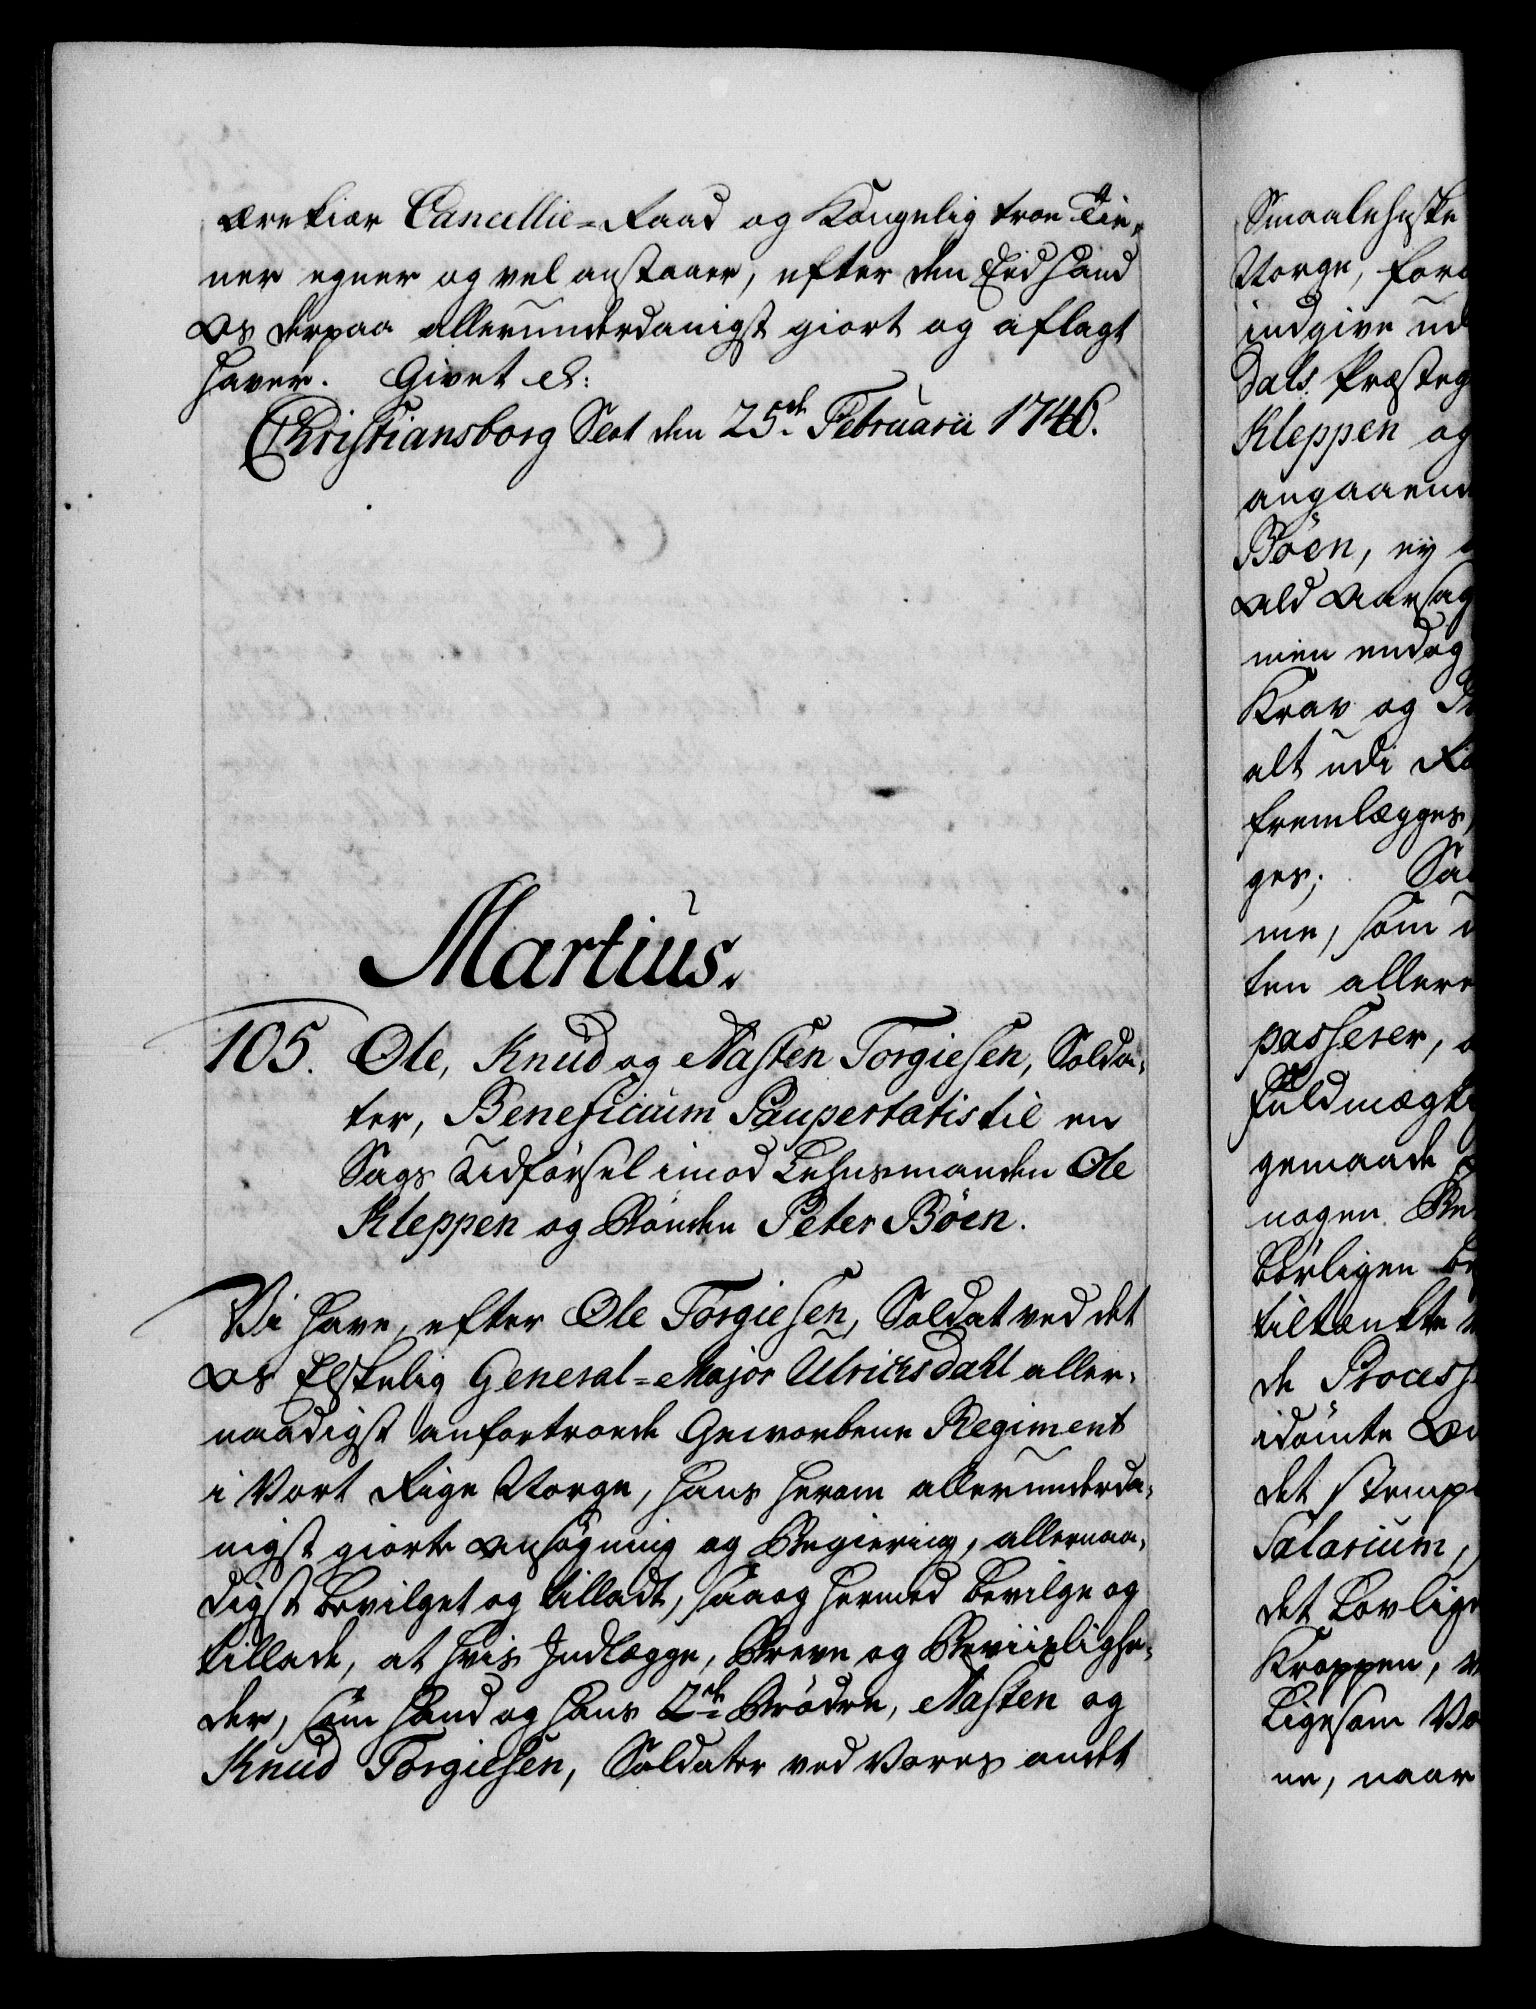 ærekiær Cancellie-Raad og Kongelig troe Tie-
ner egner og vel anstaaer, efter den Eed hand
Os derpaa allerunderdanigst giort og aflagt
haver. Givet &:
Christiansborg Slot den 25de Februarii 1746.
Martius.
105. Ole, Knud og Nasten Torgiesen, Solda-
ter, Beneficium Paupertatis til en
Sags Udførsel imod Lehnsmanden Ole
Kleppen og Bonden Peter Böen.
Vi have, efter Ole Torgiesen, Soldat ved det
Os Elskelig General-Major Ulrichsdahl aller-
naadigst anfortroede Gevorbene Regiment
i Vort Rige Norge, hans herom allerunderda-
nigst giorte Ansøgning og Begiering, allernaa-
digst bevilget og tilladt, saa og hermed bevilge og
tillade, at hvis Indlægge, Breve og Beviislighe-
der, som hand og hans 2de Brødre, Nasten og
Knud Torgiesen, Soldater ved Vores andet
Smaalehnske
Norge, for
indgive ud
Dals Præsteg
Kleppen og
angaaend
Böen, ey
ald Aarsag
men endog
Krav og
alt udi
fremlægges,
ges; Sa
me, som
ten allere
passerer,
Fuldmægti
gemaade
nogen Be
børligen be
tiltænkte
de Process
idømte
det stemp
Salarium,
det Lovlig
Kroppen,
Ligesom Vo
ne, naar